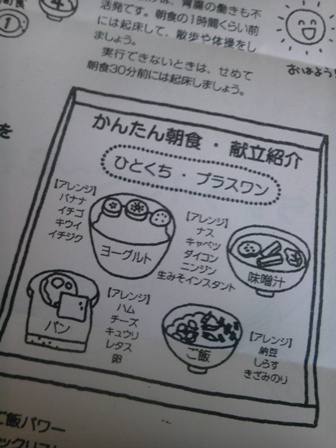 ④
①
、胃腸の働きも不
活発です。朝食の1時間くらい前
には起床して、散歩や体操をし
ましょう。
実行できないときは、せめて
朝食30分前には起床しましょう。
おはよう
を
かんたん朝食・献立紹介
ひとくち・プラスワン
【アレンジ】
バナナ
イチゴ
キウイ
イチジク
ヨーグルト
【アレンジ】
ナス
キャベツ
ダイコン
ニンジン
生みそインスタント
味噌汁
パン
【アレンジ】
ハム
チーズ
キュウリ
レタス
卵
ご飯
【アレンジ】
納豆
しらす
きざみのり
ご飯パワー